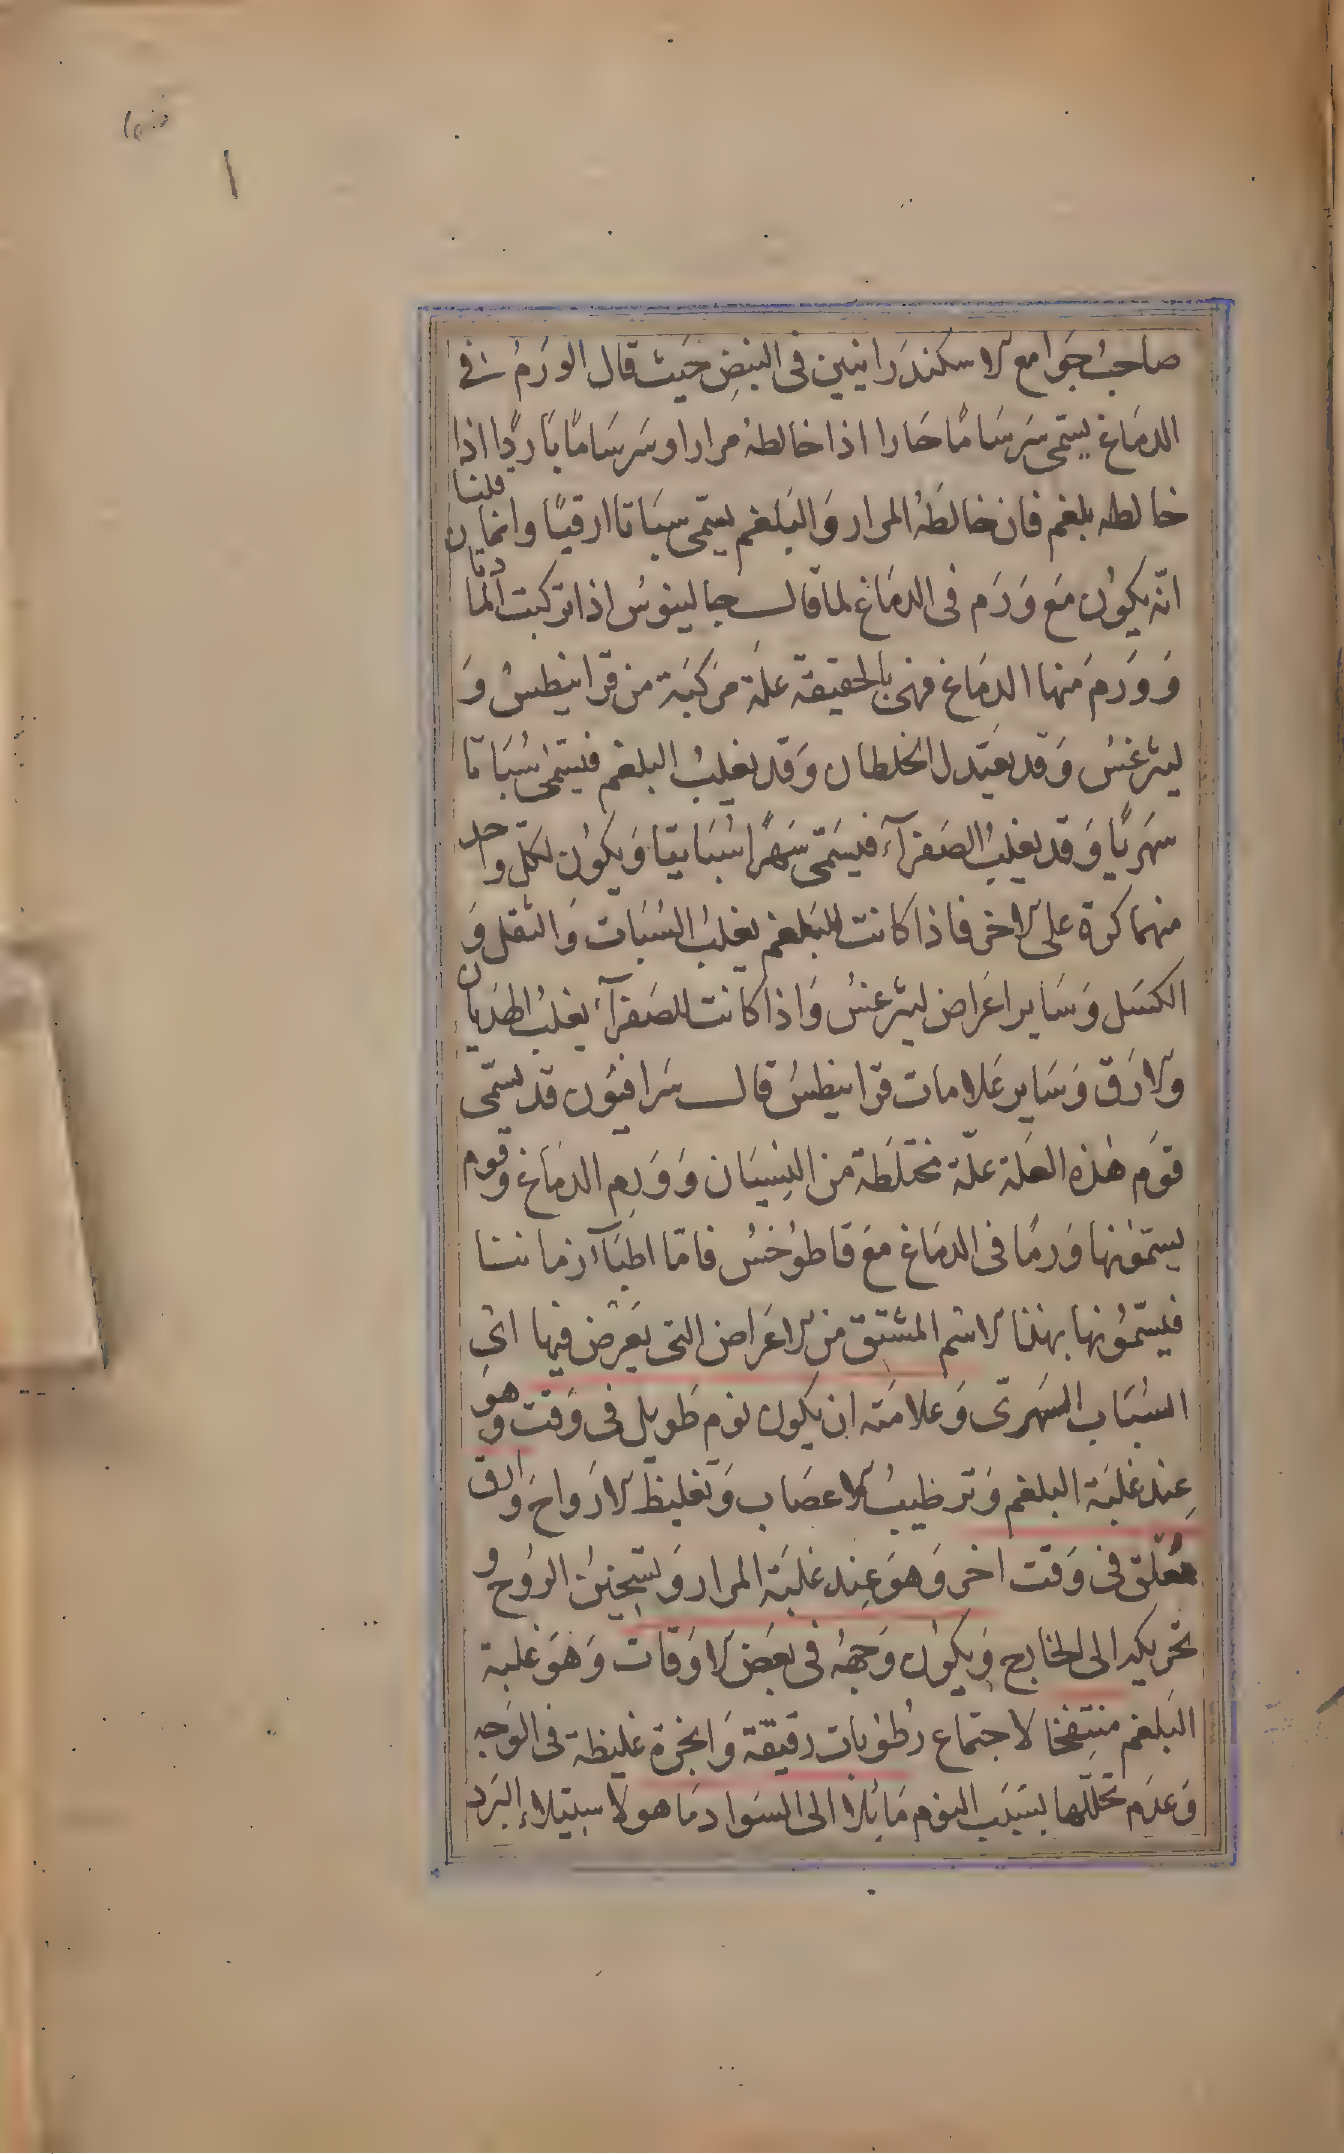 صاحبُ جَوَامع الاسكندَرانيين فى النبضِ حَيث قال الوَرَمُ فى
الدمَاغ يسَمّى سَرسَامًا حَارا اذا خالطهُ مرار او سَرسَامًا بَاردًا اذا
خالطه بلغم فان خالَطَهُ المرار وَالبَلغم يسَمّى سبَاتا ارقيًا وانما قلنا
انّه يكوُن مَع وَرَم فى الدمَاغ لما قال جالينوس اذا تركبت المادتان
وَوَرَمَ منها الدمَاغ فهى بالحقيقة علَة مرَكبَة من قرانيطس وَ
ليثرغس وَقد يعَتدل الخلطان وَقد يغلبُ البلغم فيسَمّى سُبَاتا
سَهَريًا وَقد يغلبُ الصَفرآء فيسَمّى سَهرًا سُبَاتيّا وَيكوُن لكل واحد
منهما كرة على الاخر فاذا كانت للبَلغم يغلبُ السُبَات وَالثقل وَ
الكسَل وَسَاير اعَراض ليثرغس وَاذا كانت للصَفرآء يغلب الهذيان
والارَق وَسَاير عَلامات قرانيطس قال سَرافيوُن قد يسَمّى
قوَم هٰذه العلة علّة مختلَطة من النِسيَان وَوَرِم الدمَاغ وقوم
يسَمّونها وَرمًا فى الدمَاغ مع قاطوُخس فامّا اطبَآء زماننا
فيسَمّوُنها بهٰذا الاسْم المشتق من الاعَراض التى يعَرض فيها اى
السُبَات السَهرىّ وَعلامَته ان يكون نوم طَويل فى وَقت وهو
عِند غلبَة البلغم وَترطيب الاعصَاب وَتغليظ الارَواح وارق
مُعلّق فى وَقت اخر وَهوَ عِند غلبَة المرار وَتسخين الروُح و
تحريكه الى الخارج وَيكوُن وَجههُ فى بعَض الاوَقات وَهوَ غلبة
البَلغم منتفخا لاجتماع رطوُبات رقيقة وَابخرة غليظة فى الوَجه
وَعدَم تحَللّها بسَبَب النوم مَائلا الى السَواد مَا هو لاستيلاء البَرد